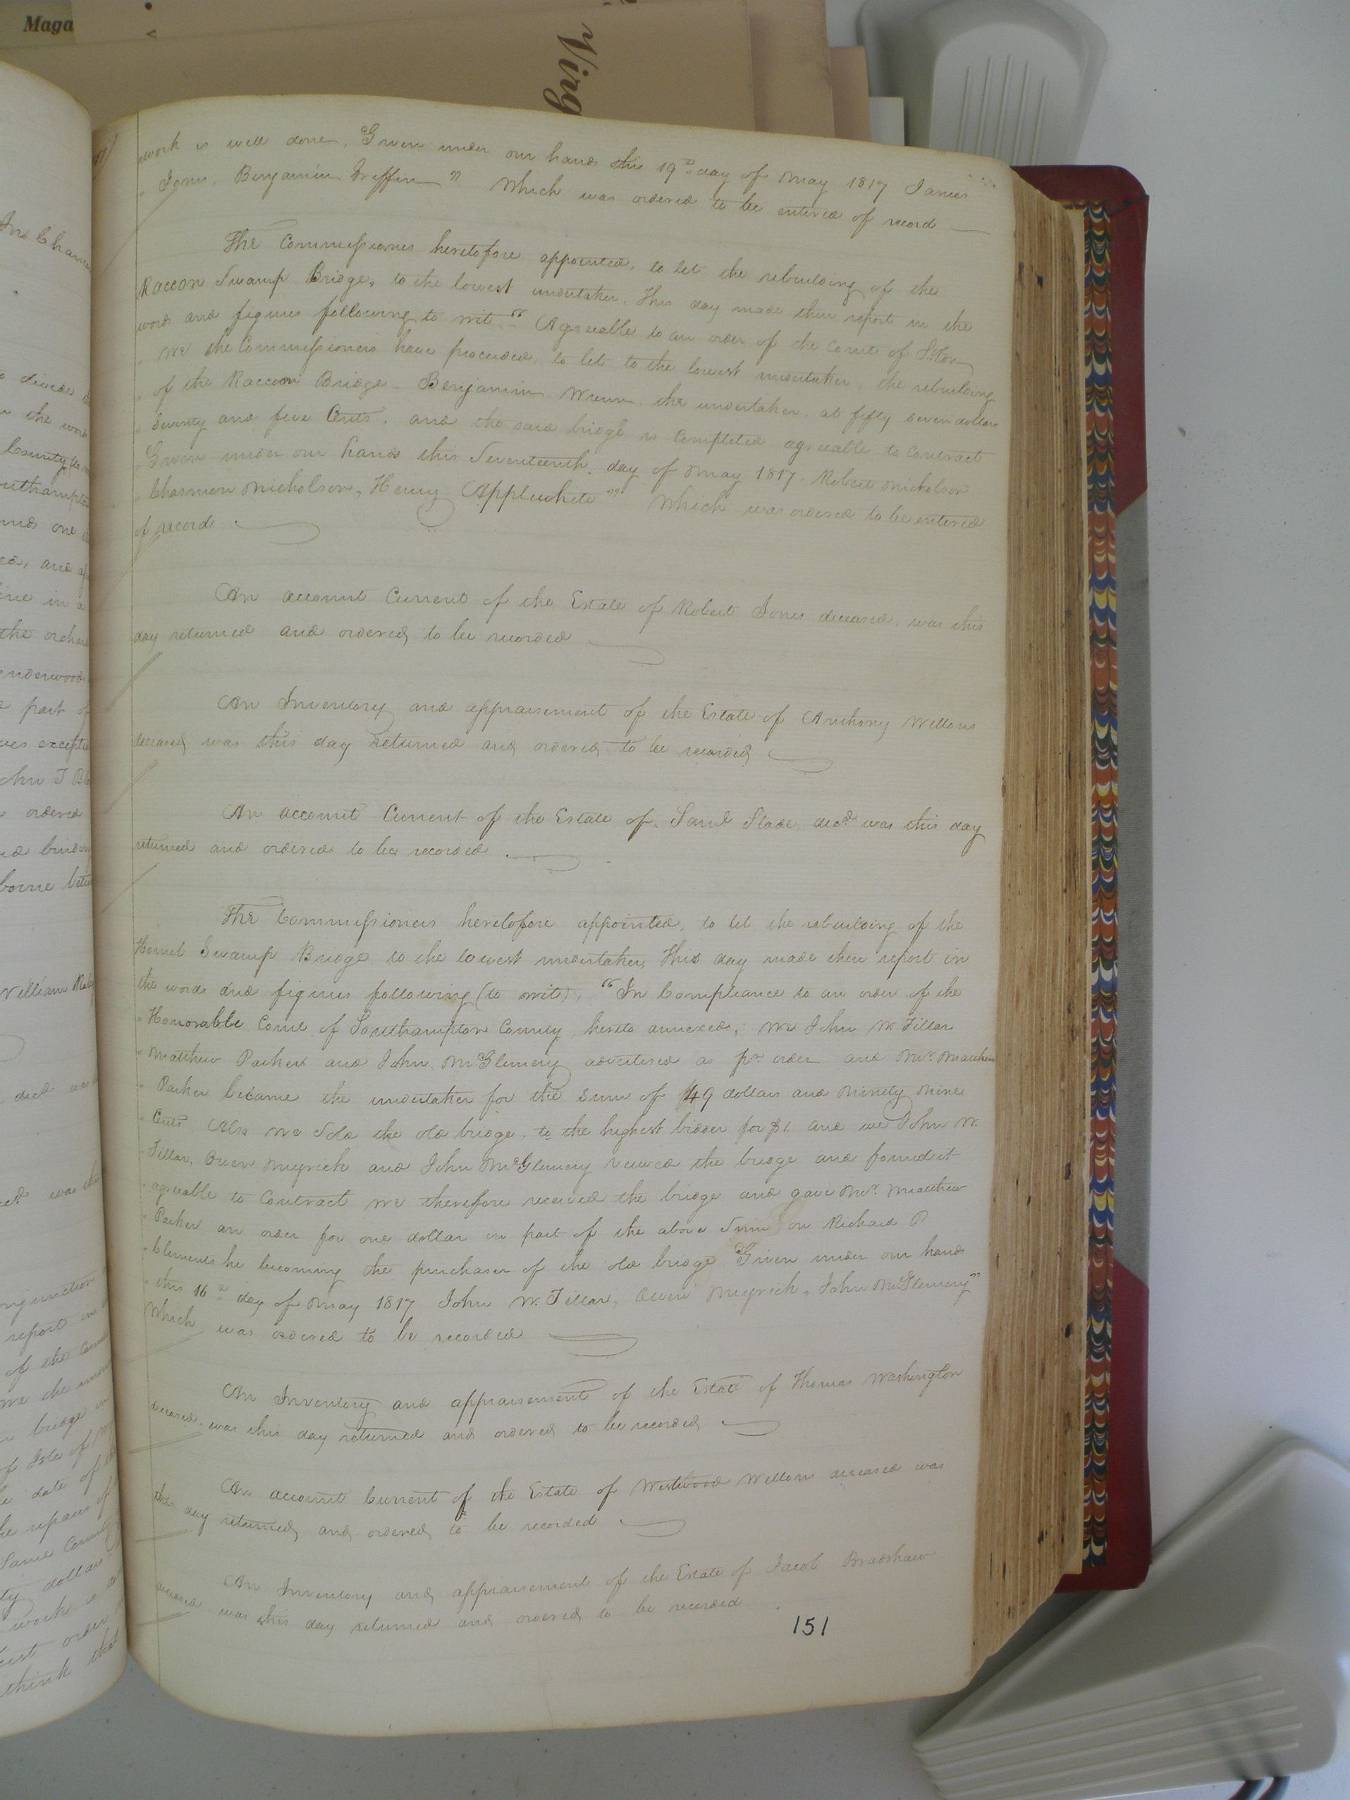 Maga
Virg
work is well done. Given under our hands this 19th day of May 1817 James
Jones. Benjamin Griffin" Which was ordered to be entered of record
The Commissioners heretofore appointed, to let the rebuilding of the
Raccon Swamp Bridge, to the lowest undertaker. This day made their report in the
words and figures following to wit "Agreeable to an order of the Court of
We the Commissioners have proceeded to let to the lowest undertaker, the rebuilding
of the Raccoon Bridge - Benjamin Wrenn the undertaker, at fifty seven dollars
Seventy and five Cents, and the said bridge is Completed agreeable to Contract
Given under our hands this Seventeenth day of May 1817. Robert Nicholson
Charmon Nicholson, Henry Applewhite" Which was ordered to be entered
of record
An account Current of the Estate of Robert Jones deceased, was this
day returned and ordered to be recorded
An Inventory and appraisement of the Estate of Anthony Wellons
deceased was this day returned and ordered to be recorded
An account Current of the Estate of Saml Slade decd was this day
returned and ordered to be recorded
The Commissioners heretofore appointed, to let the rebuilding of the
Hornet Swamp Bridge to the lowest undertaker, This day made their report in
the words and figures following (to wit). "In Compliance to an order of the
Honorable Court of Southampton County hereto annexed; We John W. Tillar
Matthew Parker and John McGlemery advertised as pr order and Mr. Matthew
Parker became the undertaker for the Sum of 49 dollars and Ninety Nine
Cents Also We Sold the old bridge to the highest bidder for $1. and we John W.
Tillar, Owen Myrick and John McGlemery viewed the bridge and found it
agreable to Contract We therefore received the bridge and gave Mr. Matthew
Parker an order for one dollar in part of the above Sum on Richard P
Clements he becoming the purchaser of the old bridge Given under our hands
this 16th day of May 1817 John W. Tillar, Owen Myrick, John McGlemery"
Which was ordered to be recorded
An Inventory and appraisement of the Estate of Thomas Washington
deceased was this day returned and ordered to be recorded
An account Current of the Estate of Westwood Wellons deceased was
this day returned and ordered to be recorded
An Inventory and appraisement of the Estate of Jacob Bradshaw
deceased was this day returned and ordered to be recorded
151